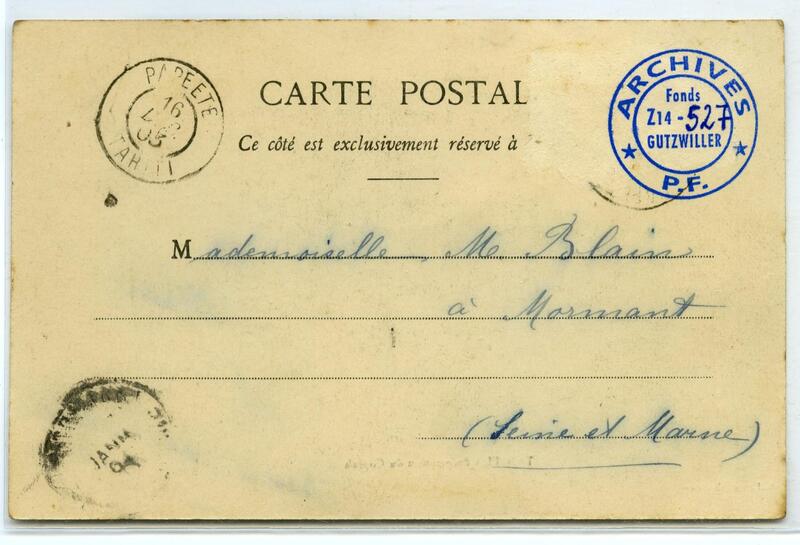 PAPEETE
16
05
TAHITI
CARTE POSTAL
Ce côté est exclusivement réservé à
ARCHIVES
Fonds
Z14-527
GUTZWILLER
P.F.
Mademoiselle M. Blain
à Mormant
(Seine et Marne)